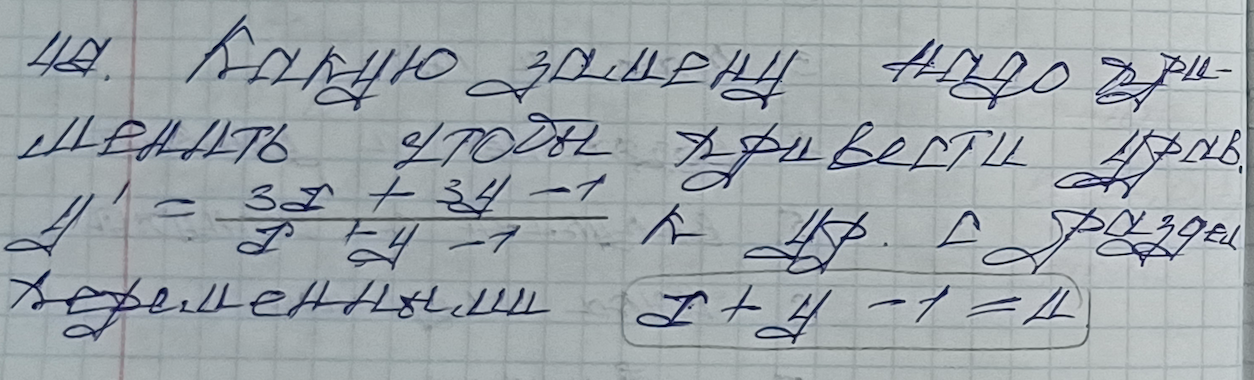 4а. Какую замену надо при-
менить чтобы привести урав.
y' = (3x + 3y - 1)/(x + y - 1) к ур. с раздел
переменными x + y - 1 = u